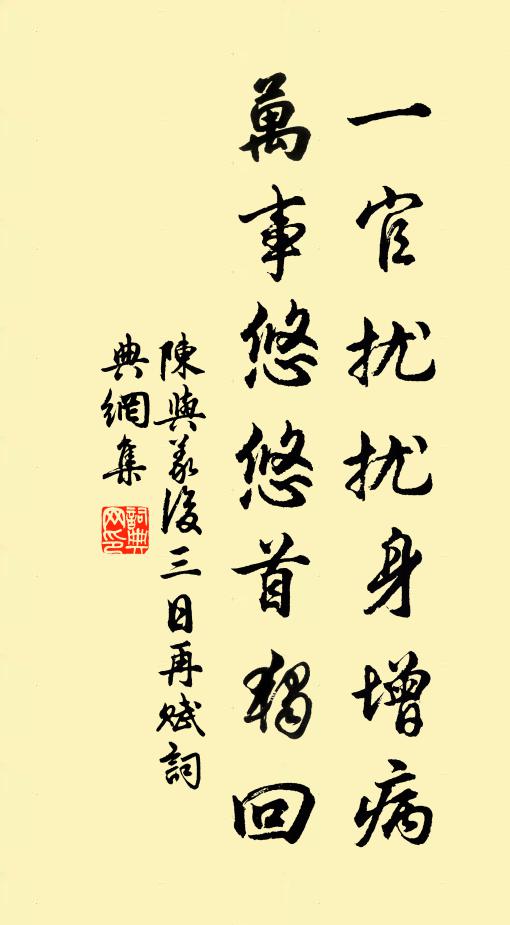 一官扰扰身增病
萬事悠悠首獨回
陳與義後三日再賦詞
典網集
詞典網印